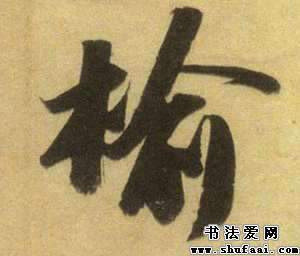 榆
书法爱网
www.shufaai.com